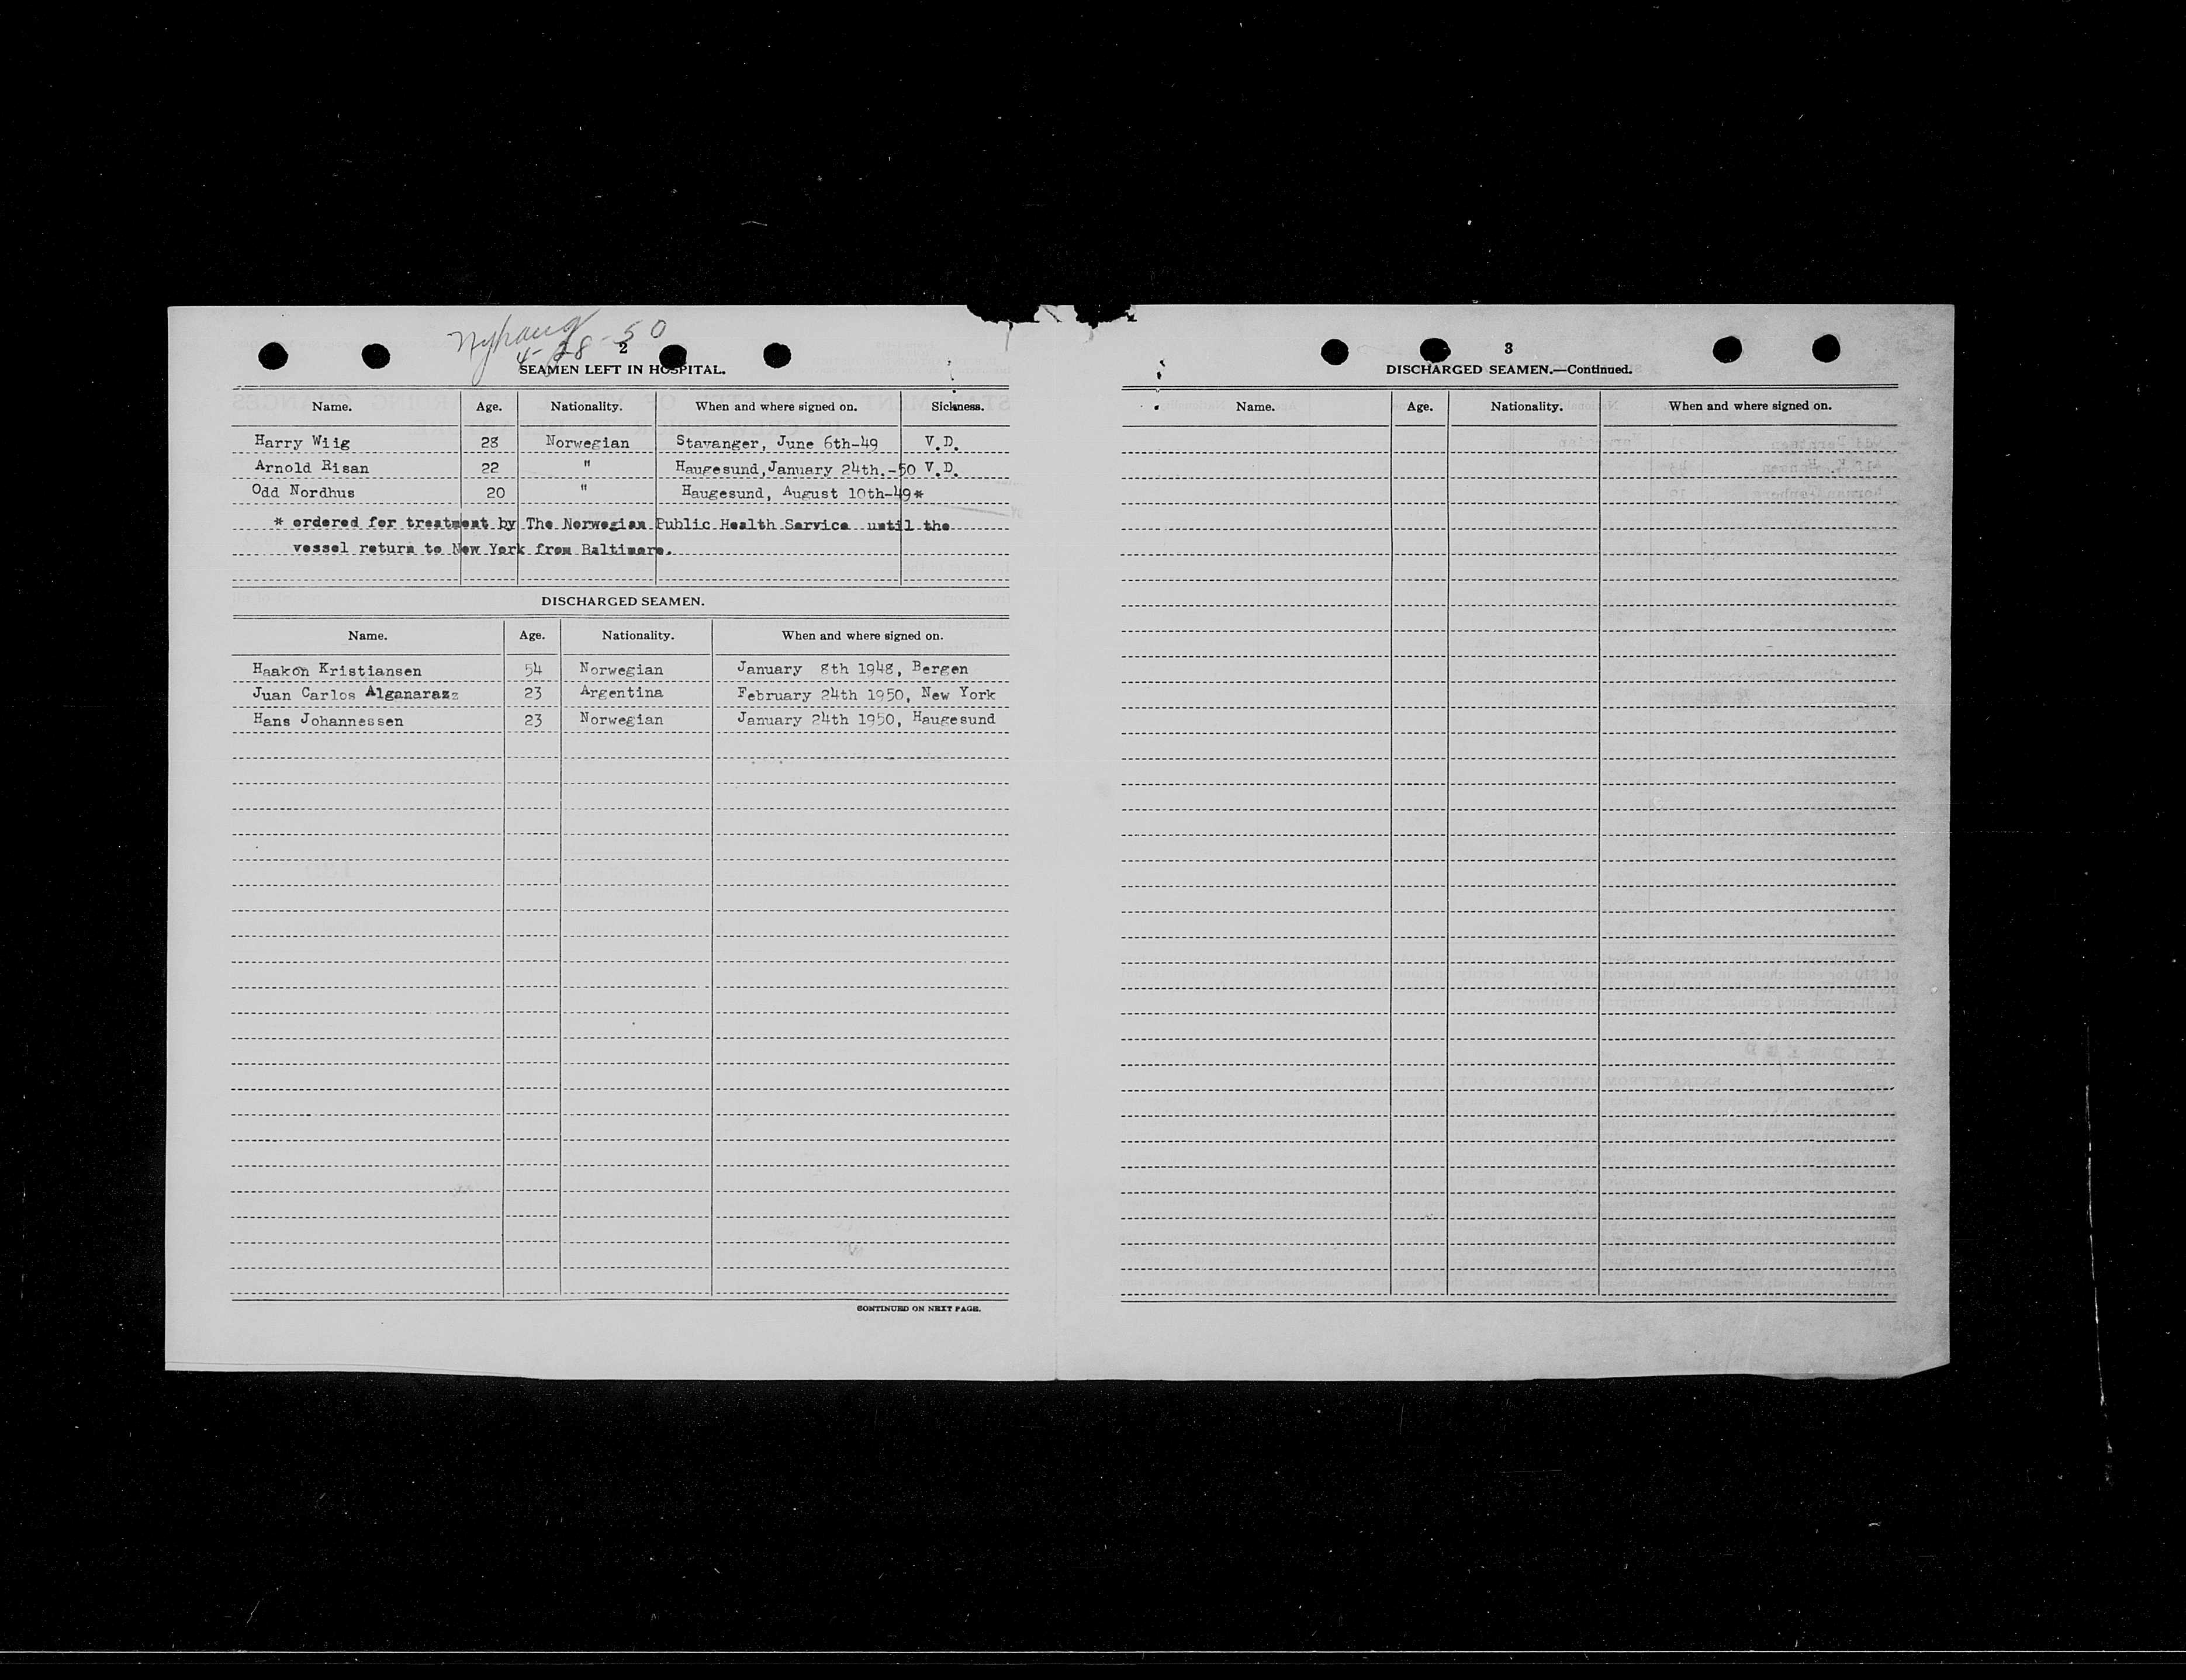 Nyhaug
4-28-50
2
SEAMEN LEFT IN HOSPITAL.
Name. Age. Nationality. When and where signed on. Sickness.
Harry Wiig 28 Norwegian Stavanger, June 6th-49 V.D.
Arnold Risan 22 " Haugesund, January 24th.-50 V.D.
Odd Nordhus 20 " Haugesund, August 10th-49*
* ordered for treatment by The Norwegian Public Health Service until the
vessel return to New York from Baltimore.
DISCHARGED SEAMEN.
Name. Age. Nationality. When and where signed on.
Haakon Kristiansen 54 Norwegian January 8th 1948, Bergen
Juan Carlos Alganarazz 23 Argentina February 24th 1950, New York
Hans Johannessen 23 Norwegian January 24th 1950, Haugesund
CONTINUED ON NEXT PAGE.
3
DISCHARGED SEAMEN.—Continued.
Name. Age. Nationality. When and where signed on.